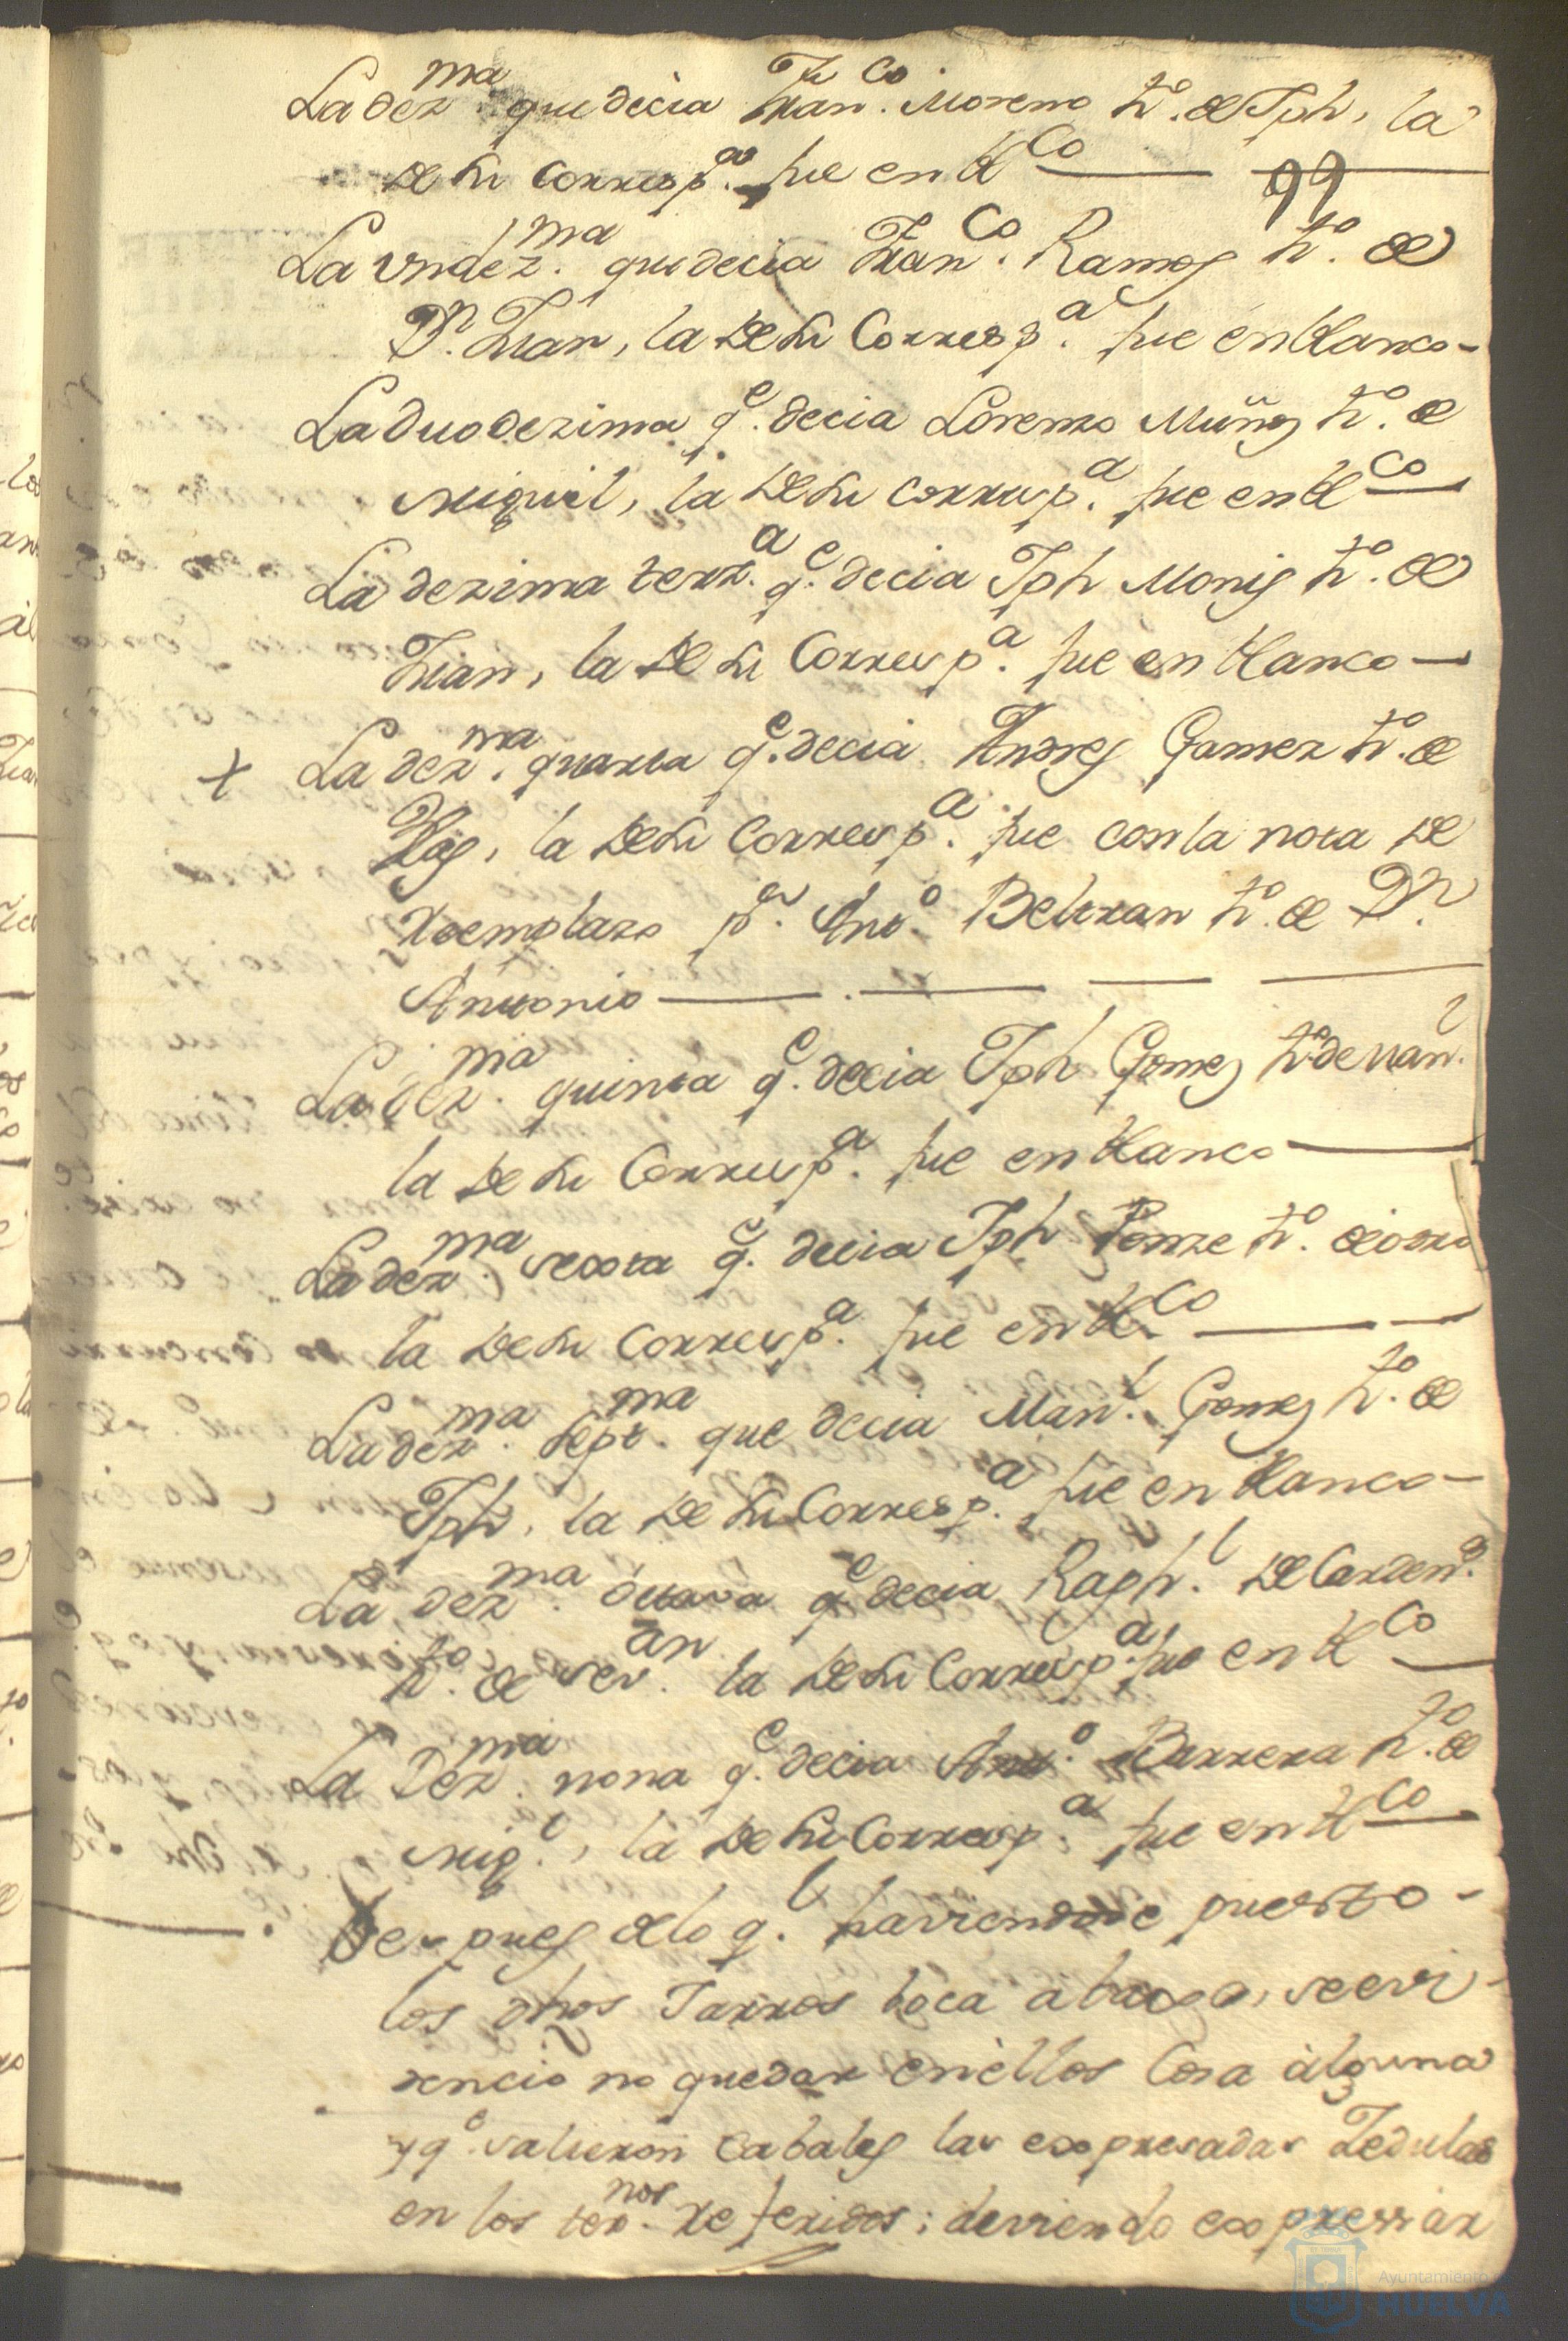 La dez.ma que decia Fran.co Moreno h.o de Jph, la
de su corresp.a fue en bl.co
99
La undez.ma que decia Fran.co Ramos h.o de
D.n Juan, la de su Corresp.a fue en blanco
La duodezima q.e decia Lorenzo Muñoz h.o de
Miguel, la de su corresp.a fue en bl.co
La dezima terz.a q.e decia Jph Monis h.o de
Juan, la de su Corresp.a fue en blanco
+ La dez.ma quarta q.e decia Andres Gamez h.o de
Blas, la de su corresp.a fue con la nota de
Reemplazo p.r Ant.o Beltran h.o de D.n
Antonio
La dez.ma quinta q.e decia Jph Gomez h.o de Man.l
la de su Corresp.a fue en blanco
La dez.ma sexta q.e decia Jph Ponze h.o de otro
la de su Corresp.a fue en bl.co
La dez.ma sept.ma que decia Man.l Gomez h.o de
Jph, la de su Corresp.a fue en blanco
La dez.ma octava q.e decia Raph.l de Carden.s
h.o de Sev.an la de su Corresp.a fue en bl.co
La Dez.ma nona q.e decia Ant.o Barrera h.o de
Mig.l, la de su Corresp.a fue en bl.co
Despues de lo q.l haviendose puesto
los dhos Jarros boca abaxo, se evi
denció no quedar en èllos Cosa àlguna
y q.e salieron Cabales las expresadas Zedulas
en los ter.nos referidos; deviendo expressar
Ayuntamiento
HUELVA